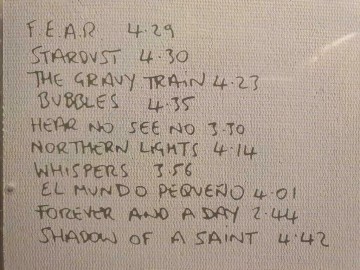 F.E.A.R 4.29
STARDUST 4.30
THE GRAVY TRAIN 4.23
BUBBLES 4.35
HEAR NO SEE NO 3.30
NORTHERN LIGHTS 4.14
WHISPERS 3.56
EL MUNDO PEQUEÑO 4.01
FOREVER AND A DAY 2.44
SHADOW OF A SAINT 4.42